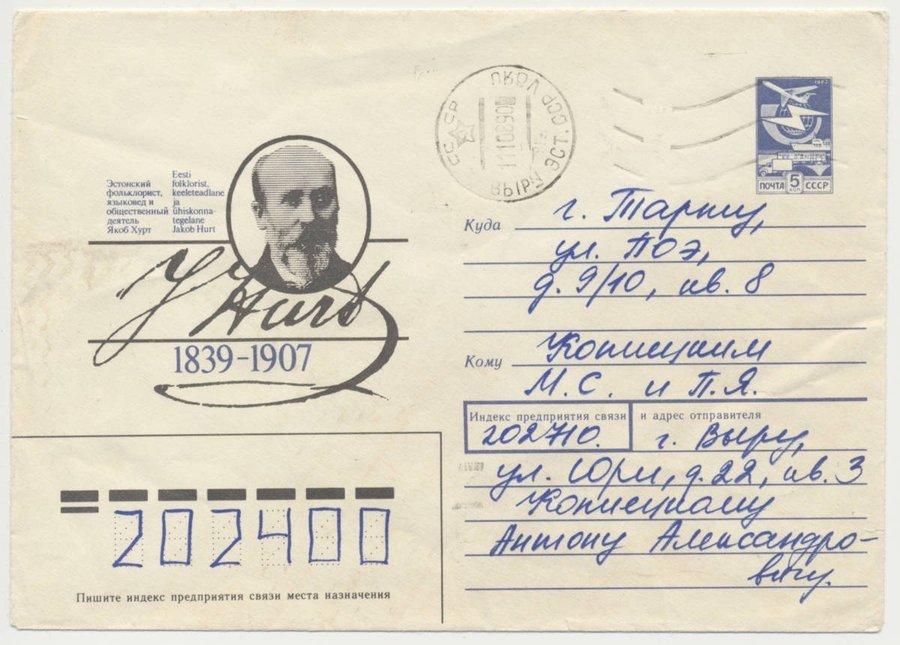 Эстонский
фольклорист,
языковед и
общественный
деятель
Якоб Хурт
Eesti
folklorist,
keeleteadlane
ja
ühiskonna-
tegelane
Jakob Hurt
J Hurt
1839-1907
СССР
ВЫРУ ЭСТ. ССР
ПОЧТА 5 СССР
Куда г. Тарту,
ул. ПОЭ,
д. 9/10, кв. 8
Кому Копицким
М.С. и П.Я.
Индекс предприятия связи и адрес отправителя
202710. г. Выру,
ул. Юри, д.22, кв. 3
Копицкому
Антону Александро-
вичу.
202400
Пишите индекс предприятия связи места назначения